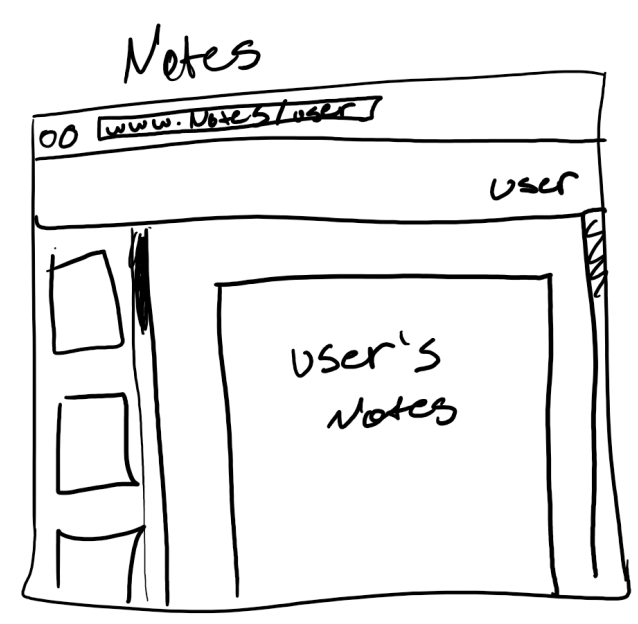 Notes
www.Notes/user
user
user's
Notes